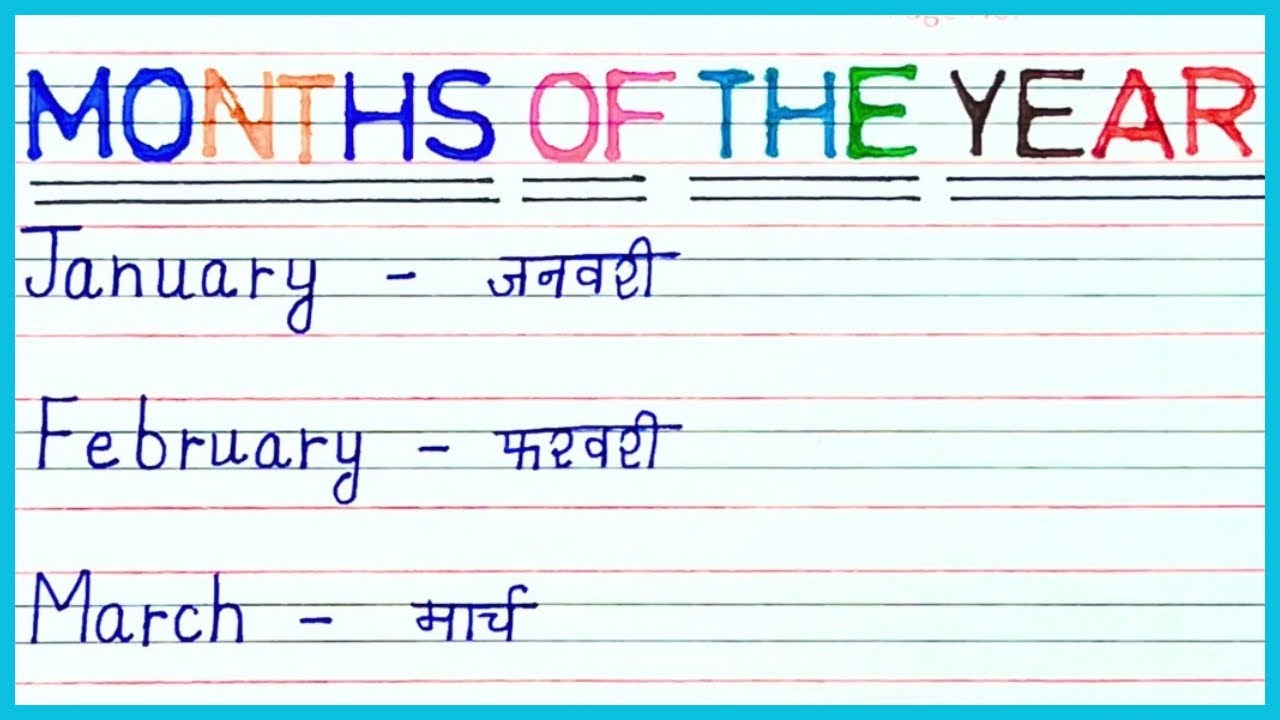 MONTHS OF THE YEAR
January - जनवरी
February - फरवरी
March - मार्च